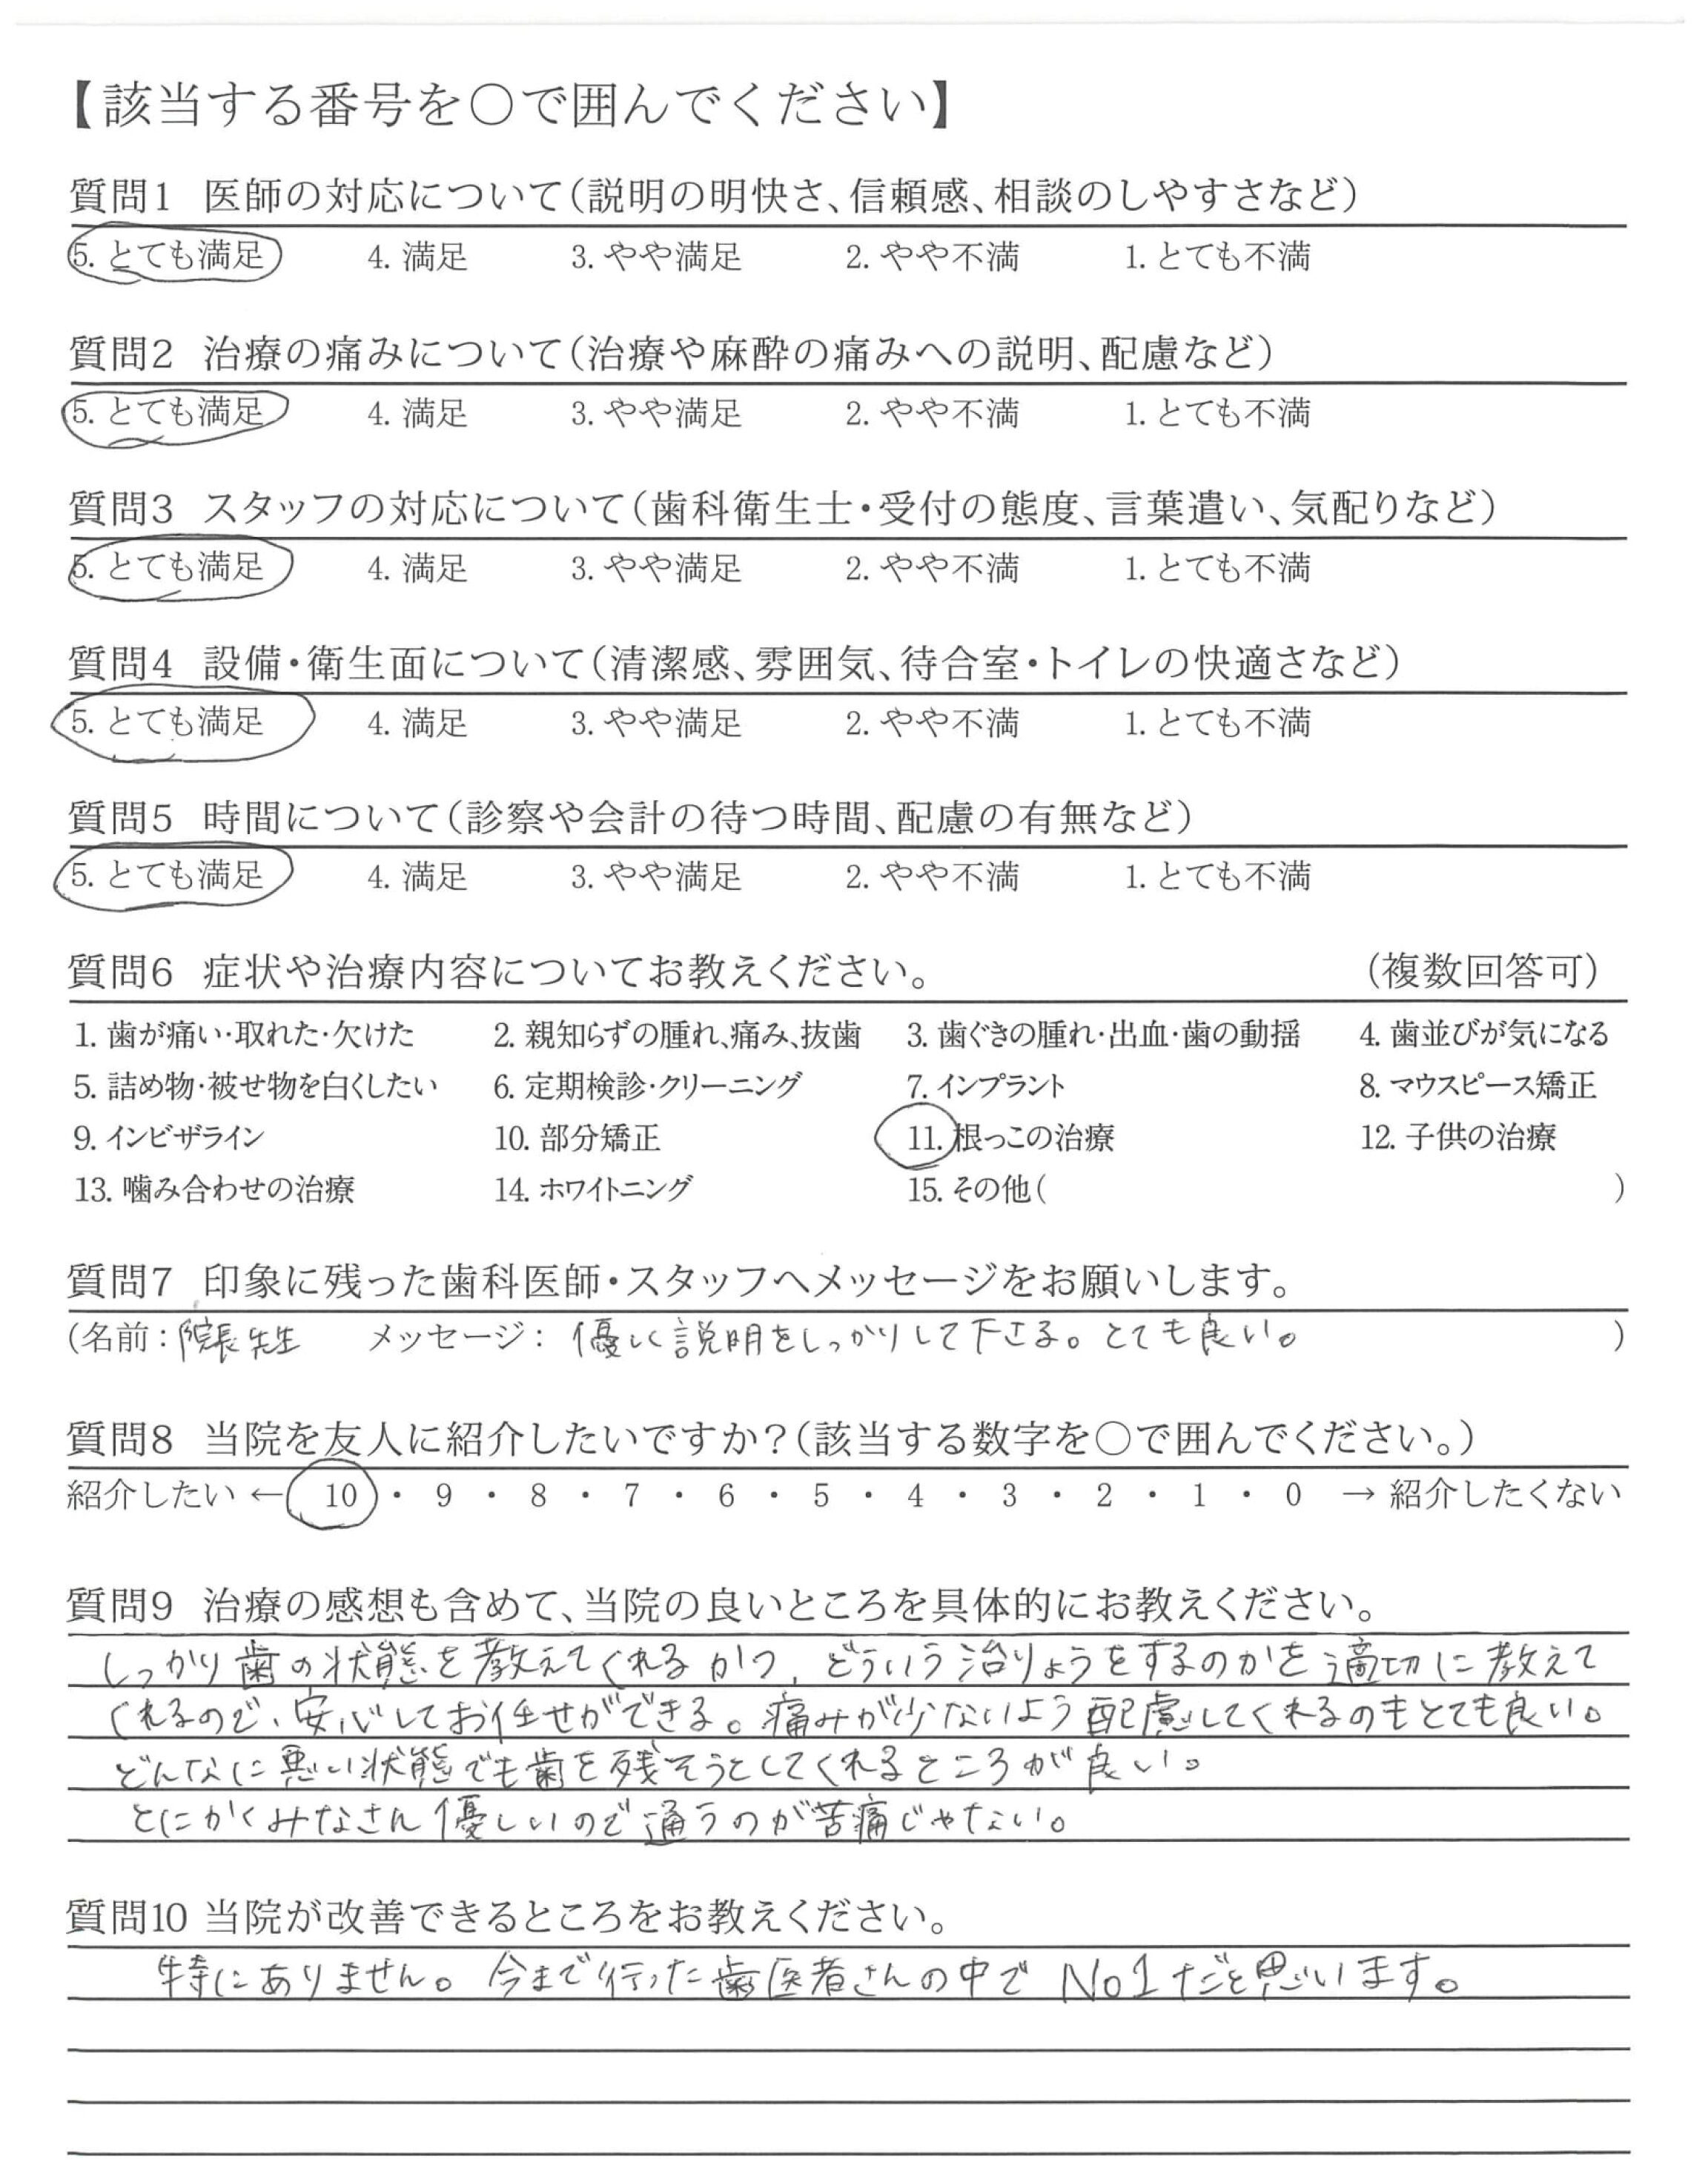 【該当する番号を○で囲んでください】
質問1 医師の対応について(説明の明快さ、信頼感、相談のしやすさなど)
5. とても満足 4. 満足 3. やや満足 2. やや不満 1. とても不満
質問2 治療の痛みについて(治療や麻酔の痛みへの説明、配慮など)
5. とても満足 4. 満足 3. やや満足 2. やや不満 1. とても不満
質問3 スタッフの対応について(歯科衛生士・受付の態度、言葉遣い、気配りなど)
5. とても満足 4. 満足 3. やや満足 2. やや不満 1. とても不満
質問4 設備・衛生面について(清潔感、雰囲気、待合室・トイレの快適さなど)
5. とても満足 4. 満足 3. やや満足 2. やや不満 1. とても不満
質問5 時間について(診察や会計の待つ時間、配慮の有無など)
5. とても満足 4. 満足 3. やや満足 2. やや不満 1. とても不満
質問6 症状や治療内容についてお教えください。 (複数回答可)
1. 歯が痛い・取れた・欠けた 2. 親知らずの腫れ、痛み、抜歯 3. 歯ぐきの腫れ・出血・歯の動揺 4. 歯並びが気になる
5. 詰め物・被せ物を白くしたい 6. 定期検診・クリーニング 7. インプラント 8. マウスピース矯正
9. インビザライン 10. 部分矯正 11. 根っこの治療 12. 子供の治療
13. 噛み合わせの治療 14. ホワイトニング 15. その他( )
質問7 印象に残った歯科医師・スタッフへメッセージをお願いします。
(名前：院長先生 メッセージ：優しく説明をしっかりして下さる。とても良い。 )
質問8 当院を友人に紹介したいですか？(該当する数字を○で囲んでください。)
紹介したい ← 10 ・ 9 ・ 8 ・ 7 ・ 6 ・ 5 ・ 4 ・ 3 ・ 2 ・ 1 ・ 0 → 紹介したくない
質問9 治療の感想も含めて、当院の良いところを具体的にお教えください。
しっかり歯の状態を教えてくれるかつ、どういう治りょうをするのかを適切に教えて
くれるので、安心してお任せができる。痛みが少ないよう配慮してくれるのもとても良い。
どんなに悪い状態でも歯を残そうとしてくれるところが良い。
とにかくみなさん優しいので通うのが苦痛じゃない。
質問10 当院が改善できるところをお教えください。
特にありません。今まで行った歯医者さんの中でNo1だと思います。